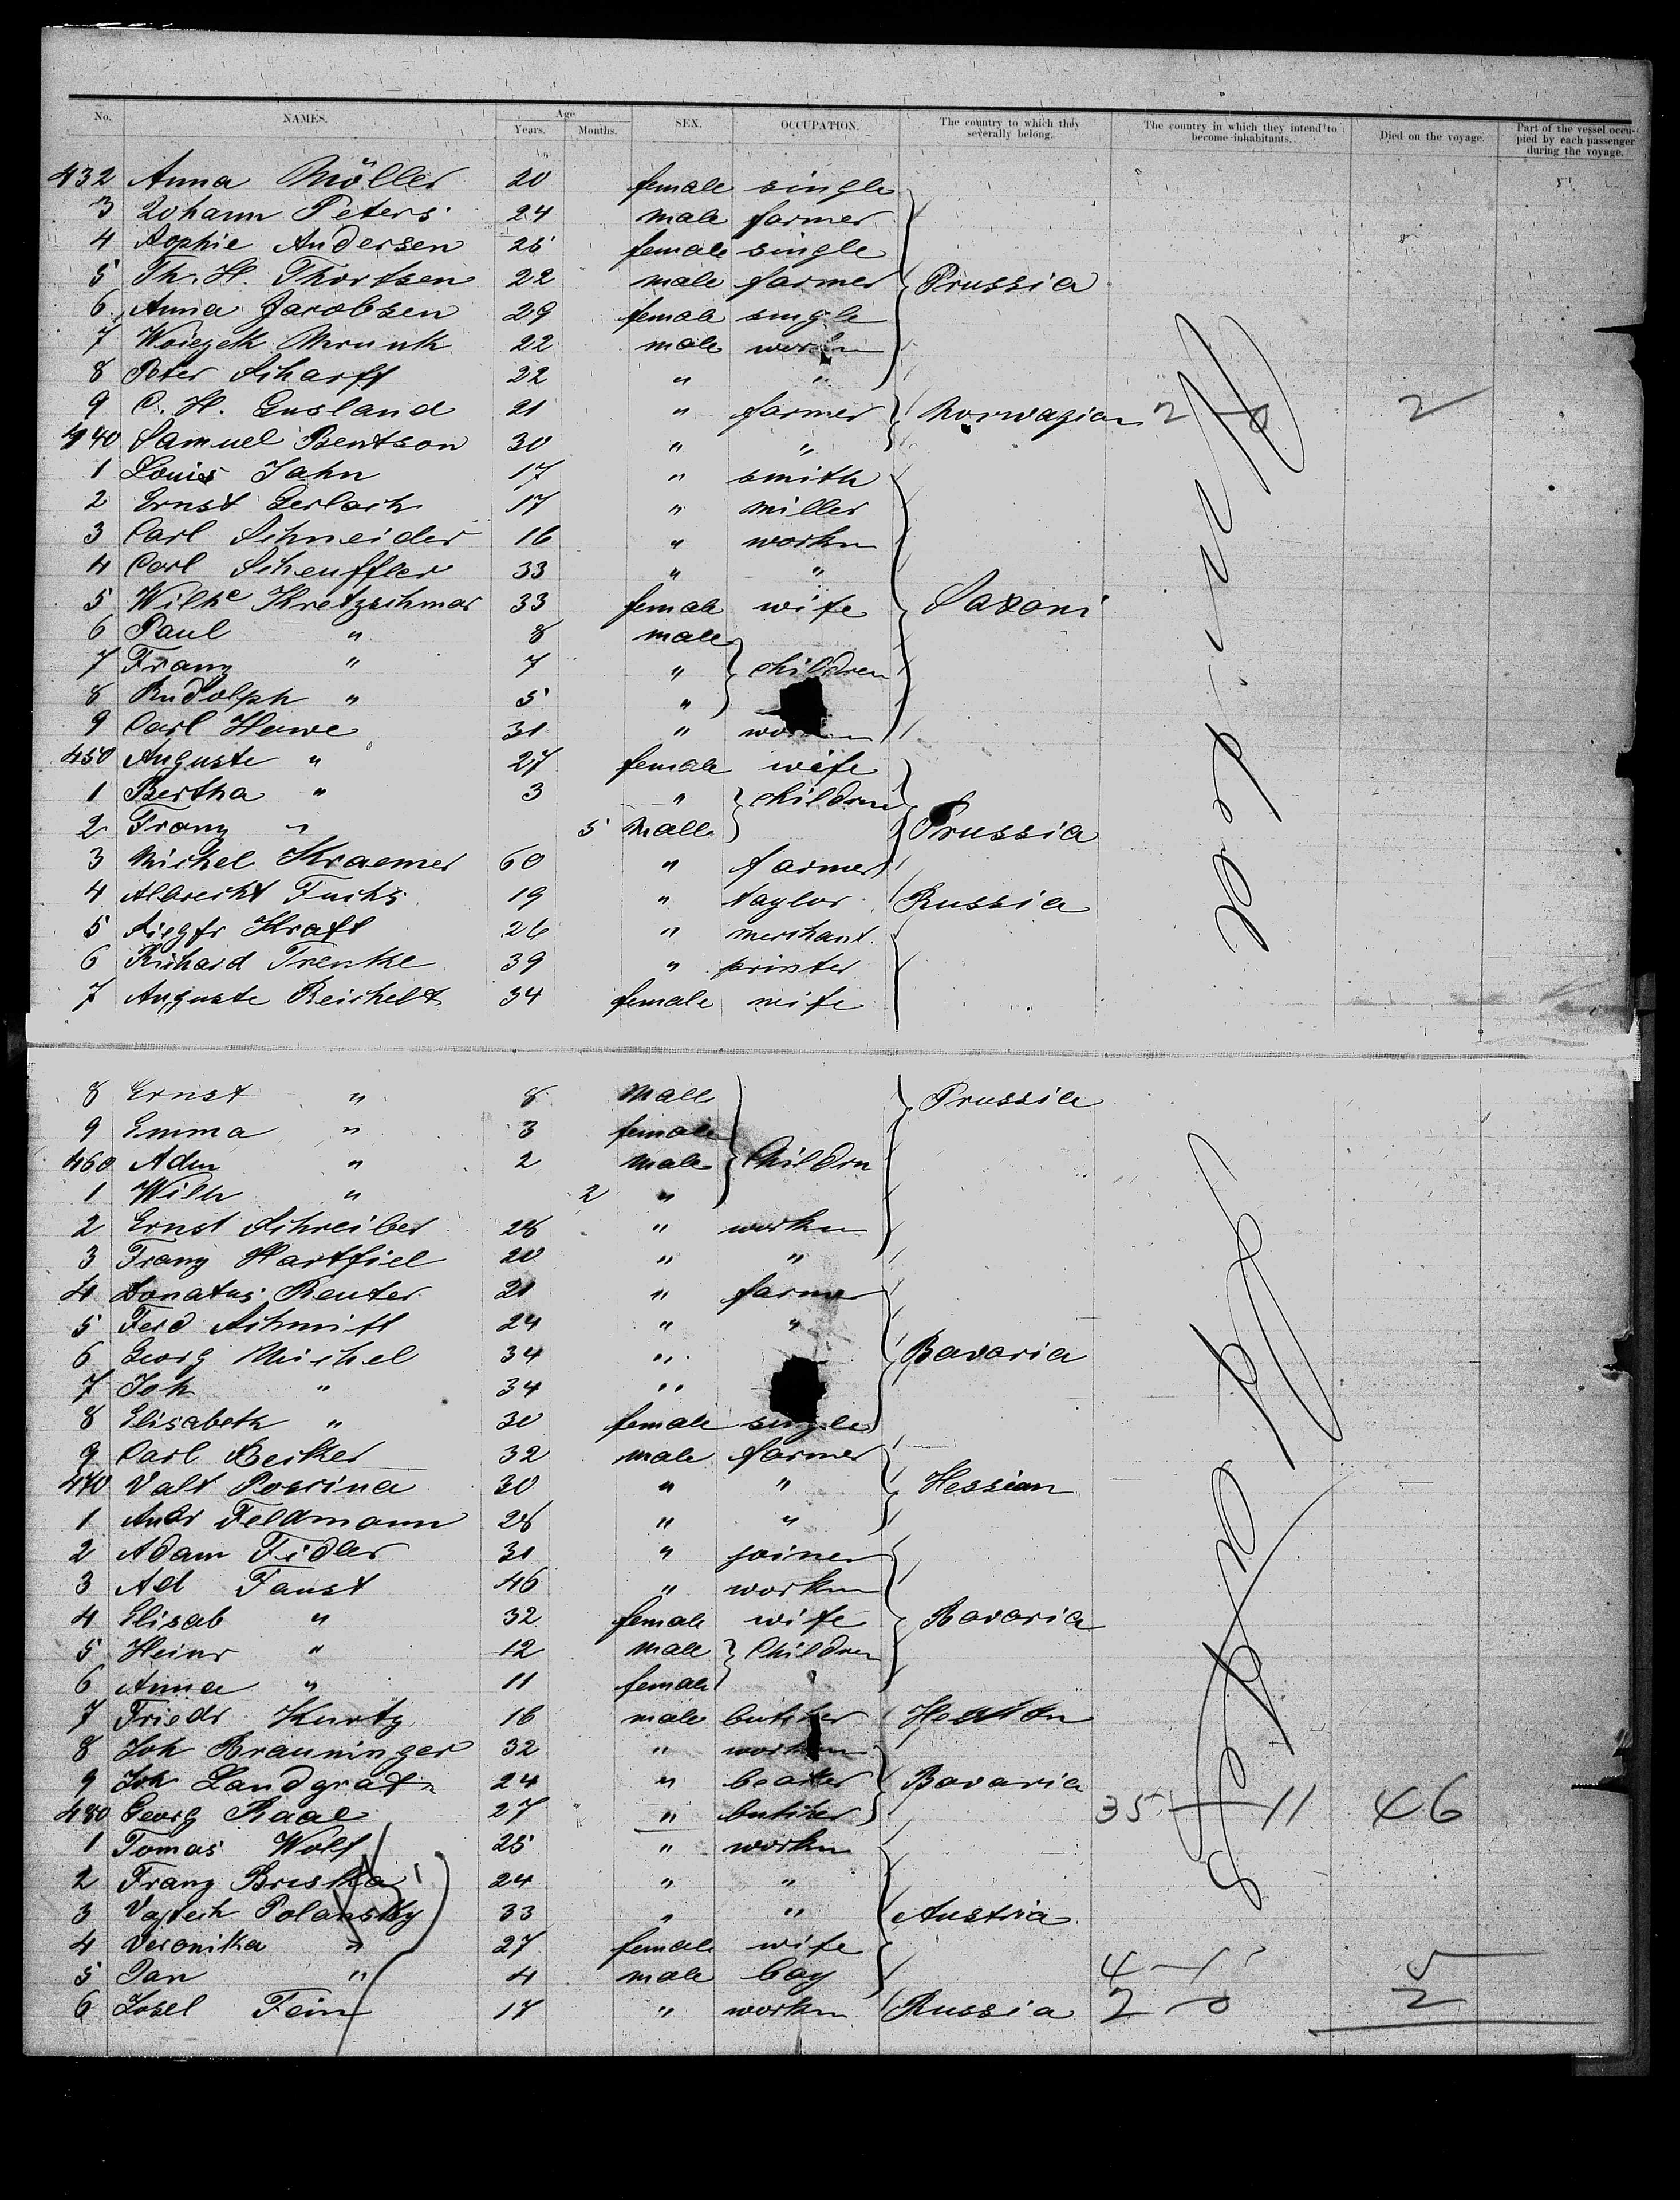 No. NAMES. Age Years. Months. SEX. OCCUPATION. The country to which they severally belong. The country in which they intend to become inhabitants. Died on the voyage. Part of the vessel occupied by each passenger during the voyage.
432 Anna Möller 20 female single
3 Johann Peters 24 male farmer
4 Sophie Andersen 25 female single
5 Th. H. Thortsen 22 male farmer Prussia
6 Anna Jacobsen 29 female single
7 22 male
8 Peter Scharff 22 " "
9 C. H. Gusland 21 " farmer Norwagian 2 2
440 Samuel Bentson 30 " "
1 Louis Jahn 17 " smith
2 Ernst Gerlach 17 " miller
3 Carl Schneider 16 " workm
4 Carl Scheuffler 33 " "
5 Wilhe Kretzschmar 33 female wife Saxoni
6 Paul " 8 male
7 Franz " 7 " children
8 Rudolph " 5 "
9 Carl Hawe 31 "
450 Auguste " 27 female wife
1 Bertha " 3 " children
2 Franz " 5 male Prussia
3 Michel Kraemer 60 " farmer
4 Albrecht Fuchs 19 " taylor Russia
5 Siegfr Kraft 26 " merchant.
6 Richard Trenkle 39 " printer
7 Auguste Reichelt 34 female wife
8 Ernst " 8 male Prussia
9 Emma " 3 female
460 " 2 male Childrn
1 Wilh " 2 "
2 Ernst Schreiber 28 " workm
3 Franz Hartfiel 20 " "
4 Donatus Reuter 21 " farmer
5 Ferd Schmitt 24 " "
6 Georg Michel 34 " Bavaria
7 Joh " 34 "
8 Elisabeth " 30 female single
9 Carl Becker 32 male farmer
470 Valt 30 " " Hessian
1 Andr Feldmann 28 " "
2 Adam Fidler 31 " joiner
3 Ad Faust 46 " workm
4 Elisab " 32 female wife Bavaria
5 Heinr " 12 male Children
6 Anna " 11 female
7 Friedr Kurtz 16 male butcher
8 Joh Brauninger 32 " workm
9 Joh Landgraf 24 " Bavaria
480 Georg Raae 27 " butcher 35 11 46
1 Tomas Wolf 25 " workm
2 Franz Briska 24 " "
3 Vojtech Polansky 33 " " Austria
4 Veronika " 27 female wife
5 Jan " 4 male boy 4 1 5
6 Josel Fein 17 " workm Russia 2 0 2